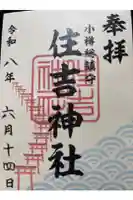 奉拝
小樽総鎮守
住吉神社
令和八年六月十四日